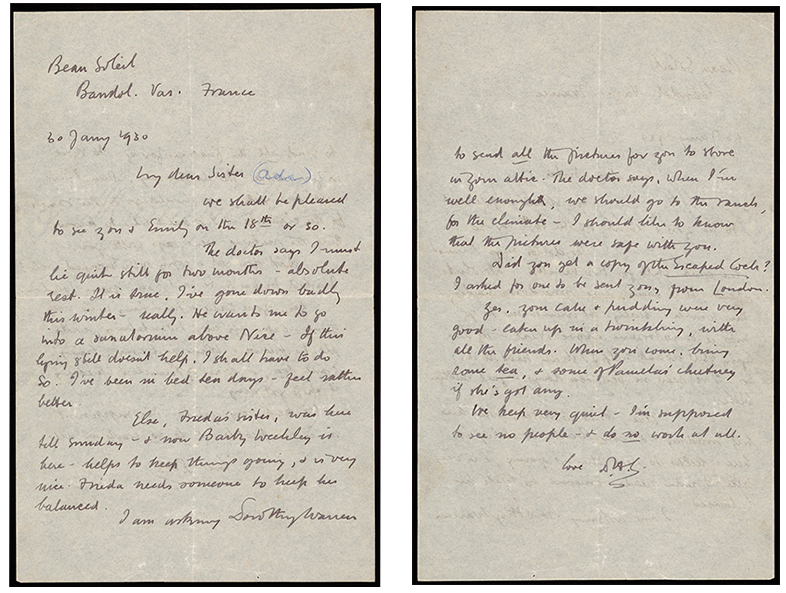 Beau Soleil
Bandol. Var. France
30 Jany 1930
My dear Sister (Ada)
we shall be pleased
to see you & Emily on the 18th or so.
The doctor says I must
lie quite still for two months - absolute
rest. It is true, I've gone down badly
this winter - really. He wants me to go
into a sanatorium above Nice - If this
lying still doesn't help, I shall have to do
so. I've been in bed ten days - feel rather
better.
Else, Frieda's sister, was here
till Sunday - & now Barby Weekley is
here - helps to keep things going, & is very
nice. Frieda needs someone to keep her
balanced.
I am asking Dorothy Warren
to send all the pictures for you to store
in your attic. The doctor says, when I'm
well enough, we should go to the ranch,
for the climate - I should like to know
that the pictures were safe with you.
Did you get a copy of the Escaped Cock?
I asked for one to be sent you, from London.
Yes, your cake & pudding were very
good - eaten up in a twinkling, with
all the friends. When you come, bring
some tea, & some of Pamela's chutney
if she's got any.
We keep very quiet - I'm supposed
to see no people - & do no work at all.
love DHL.